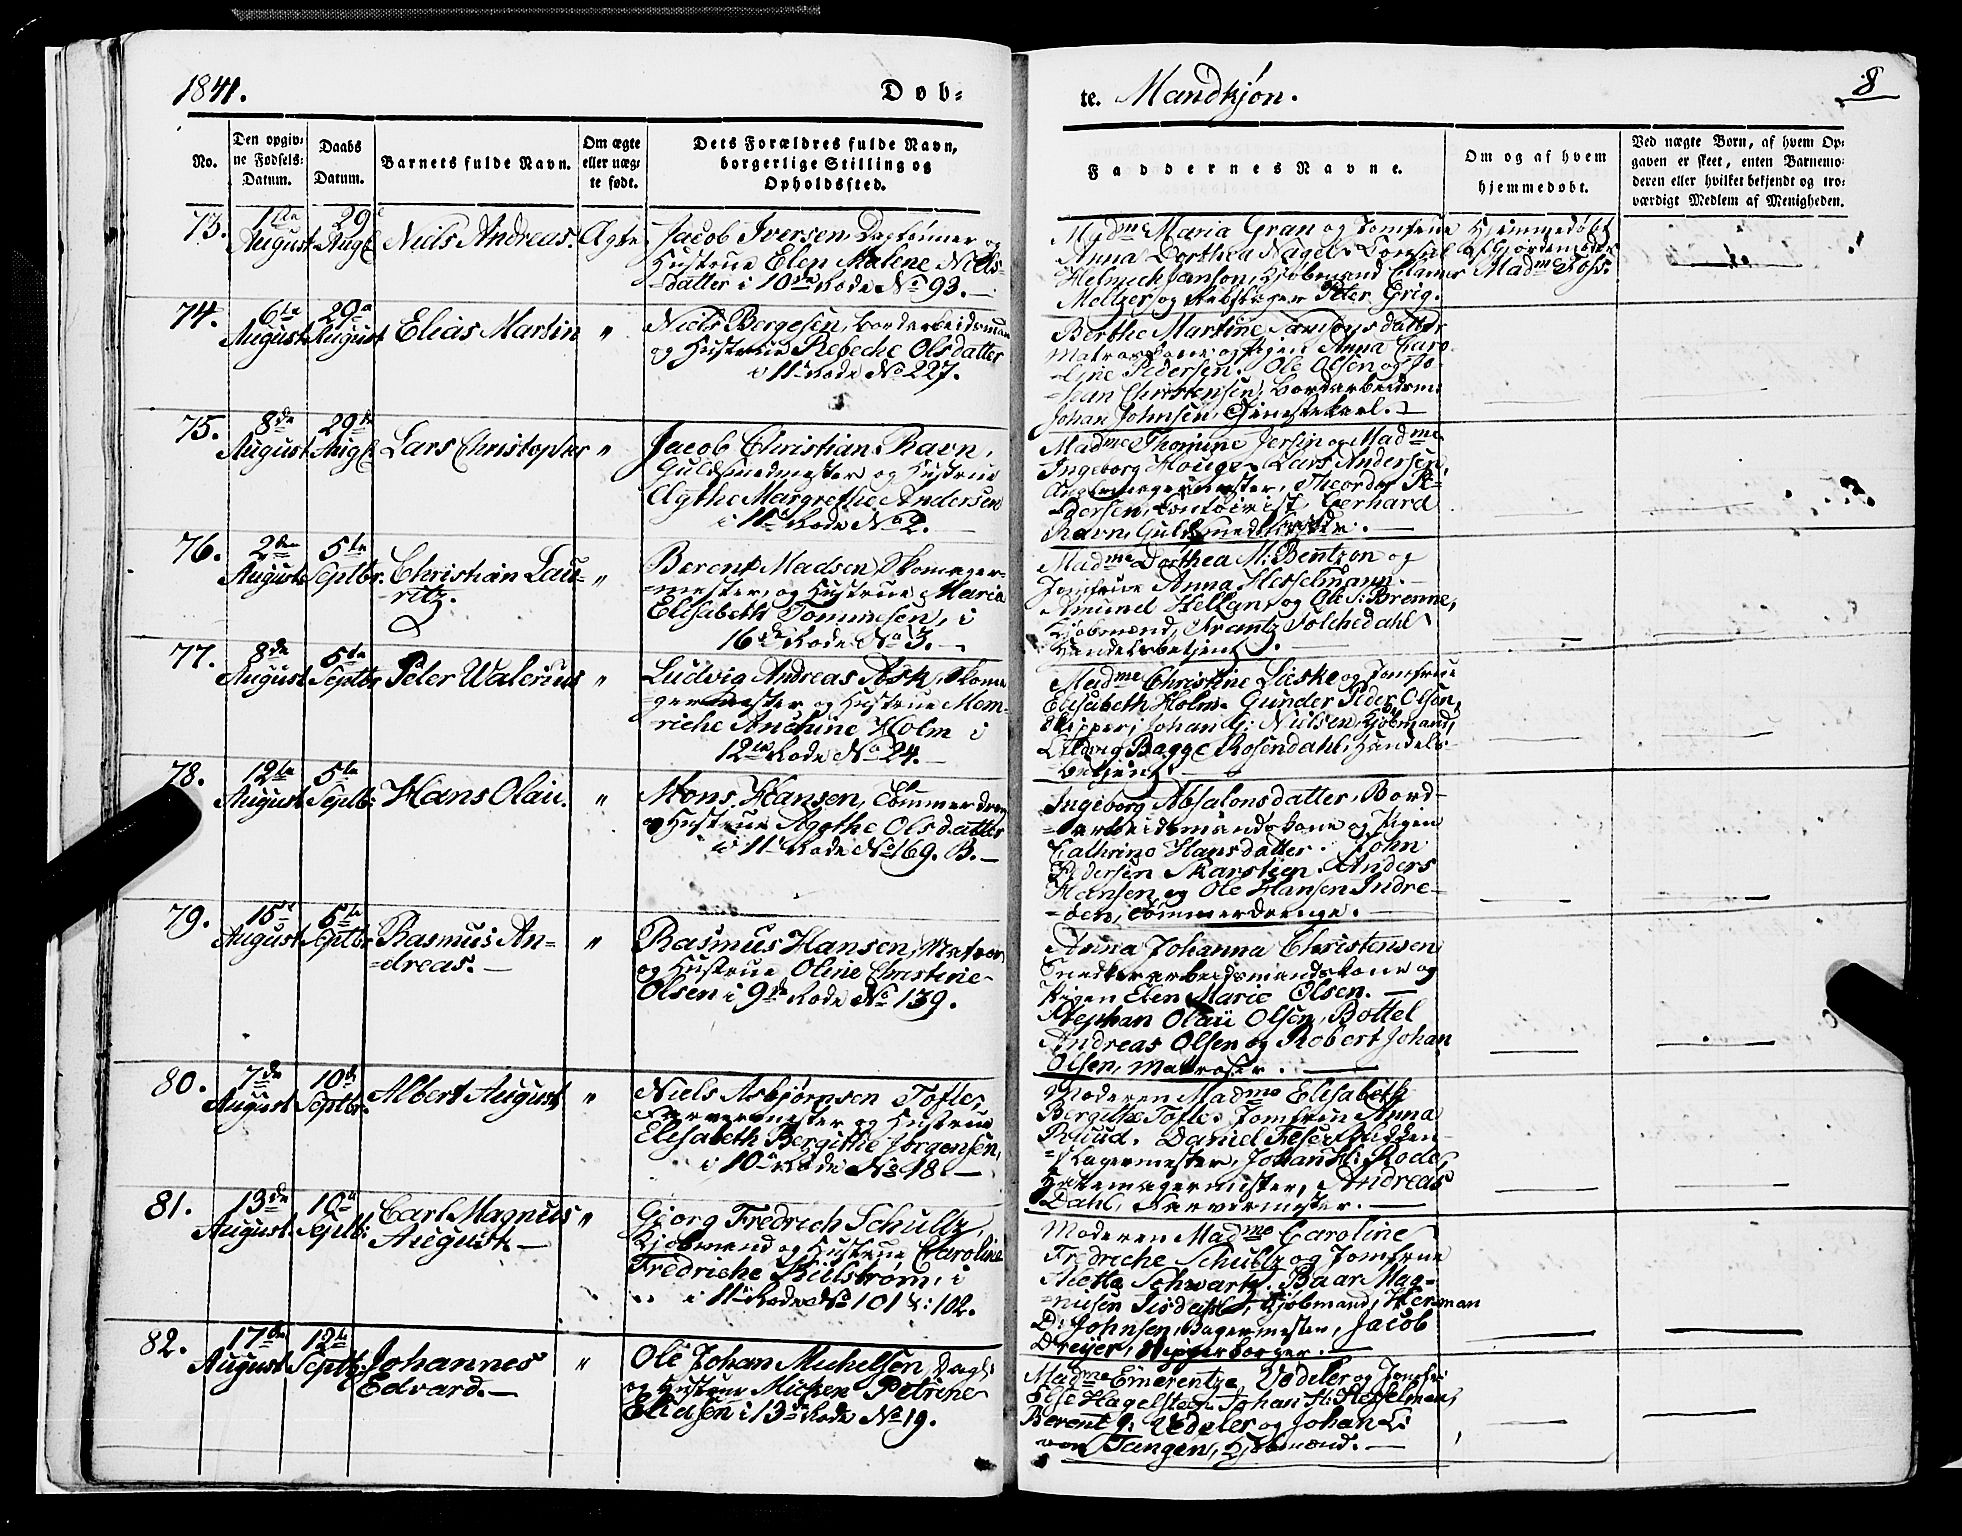 1841.
Døb-
te. Mandkjøn.
8
No.
Den opgiv-
ne Fødsels-
Datum.
Daabs
Datum.
Barnets fulde Navn.
Om ægte
eller uæg-
te født.
Dets Forældres fulde Navn,
borgerlige Stilling og
Opholdssted.
Faddernes Navne.
Om og af hvem
hjemmedøbt.
Ved uægte Børn, af hvem Op-
gaven er skeet, enten Barnemo-
deren eller hvilket bekjendt og tro-
værdigt Medlem af Menigheden.
73.
1ste
August
29de
Augt
Niels Andreas.
Ægte
Jacob Iversen, Daglønner og
Hustrue Elen Malene Niels-
datter i 10de Rode No 93.
Madme Maria Gran og Jomfrue
Anna Dorthea Nagel. Consul
Helmich Janson, Kjøbmænd Clamer
Meltzer og Rebslager Peter Grig.
Hjemmedøbt
af Gjordemoder
Madme Foss.
74.
6te
August
29de
August
Elias Martin
"
Niels Bergesen, Bordarbeidsmand
og Hustrue Rebeche Olsdatter
i 11te Rode No 227.
Berthe Martine
Matroskone og Pigen Anna Caro-
line Pedersen. Ole Olsen og Jo-
han Christensen, Bordarbeidsm:
Johan Johnsen, Tjenestekarl.
75.
8de
August
29de
Augt
Lars Christopher
"
Jacob Christian Ravn,
Guldsmedmester og Hustrue
Agthe Margrethe Andersen
i 11te Rode No 2.
Madme Thomine Jersin og Madme
Ingeborg Houge. Lars Andersen,
Theordor Pe-
dersen, Contoirist, Gerhard
Ravn, Guldsmed
76.
2den
August
5te
Septbr.
Christian Lau-
ritz.
"
Berent Madsen, Skomager-
mester, og Hustrue Maria
Elisabeth Tommesen, i
16de Rode No 3.
Madme Dorthea M: Bentzon og
Jomfrue Anna Hesselmann.
Amund Hellan, og Ole I: Brenne,
Kjøbmænd, Frantz Toschedahl
Handelsbetjent.
77.
8de
August
5te
Septbr
Peter Walerius
"
Ludvig Andreas Ask, Skoma-
germester og Hustrue Hen-
riche Anchine Holm i
12te Rode No 24.
Madme Christine Læske og Jomfrue
Elisabeth Holm. Gunder Peder Olsen,
Skipper, Johan G: Nielsen, Kjøbmand,
Ludvig Bagge Rosendahl, Handels-
betjent.
78.
12te
August
5te
Septbr:
Hans Olai.
"
Mons Hansen, Tømmerdreng
og Hustrue Agathe Olsdatter
i 11te Rode No 169. B.
Ingeborg Absalonsdatter, Bord-
arbeidsmandskone og Pigen
Cathrine Hansdatter. John
Pedersen Skarstien. Anders
Hansen, og Ole Hansen Indre-
den, Tømmerdrenge.
79.
15de
August
5te
Septbr.
Rasmus An-
dreas.
"
Rasmus Hansen, Matros
og Hustrue Oline Christine
Olsen i 9de Rode No 139.
Anna Johanna Christensen
Snedkerarbeidsmandskone og
Pigen Elen Marie Olsen.
Stephan Olaü Olsen, Bottel
Andreas Olsen og Robert Johan
Olsen, Matroser.
80.
7de
August
10de
Septbr.
Albert August
"
Niels Asbjørnsen Tofte,
Farvermester og Hustrue
Elisabeth Bergithe Jørgensen,
i 10de Rode No 18.
Moderen Madme Elisabeth
Bergithe Tofte. Jomfrue Anna
Daniel
magermester, Johan H: Rode,
Hattemagermester, Andreas
Dahl, Farvermester.
81.
13de
August
10de
Septbr:
Carl Magnus
August.
"
Gjørg Fredrich Schultz,
Kjøbmand og Hustrue Caroline
Fredriche Kielstrøm, i
i 11te Rode No 101 & 102.
Moderen Madme Caroline
Fredriche Schultz og Jomfrue
Schwartz. Baar Mag-
nusen Kjøbmand, Herman
D: Johnsen, Bagermester, Jacob
Dreyer, Skipperborger.
82.
17de
August
12te
Septbr:
Johannes
Edvard.
"
Ole Johan Michelsen, Dagl:
og Hustrue Michen Petrine
Eliesen i 13de Rode No 19.
Madme Emerentze Vedeler og Jomfr:
Else Hagelsteen. Johan H: Hesselman,
Berent J: Vedeler og Johan L:
von Tangen, Kjøbmænd.